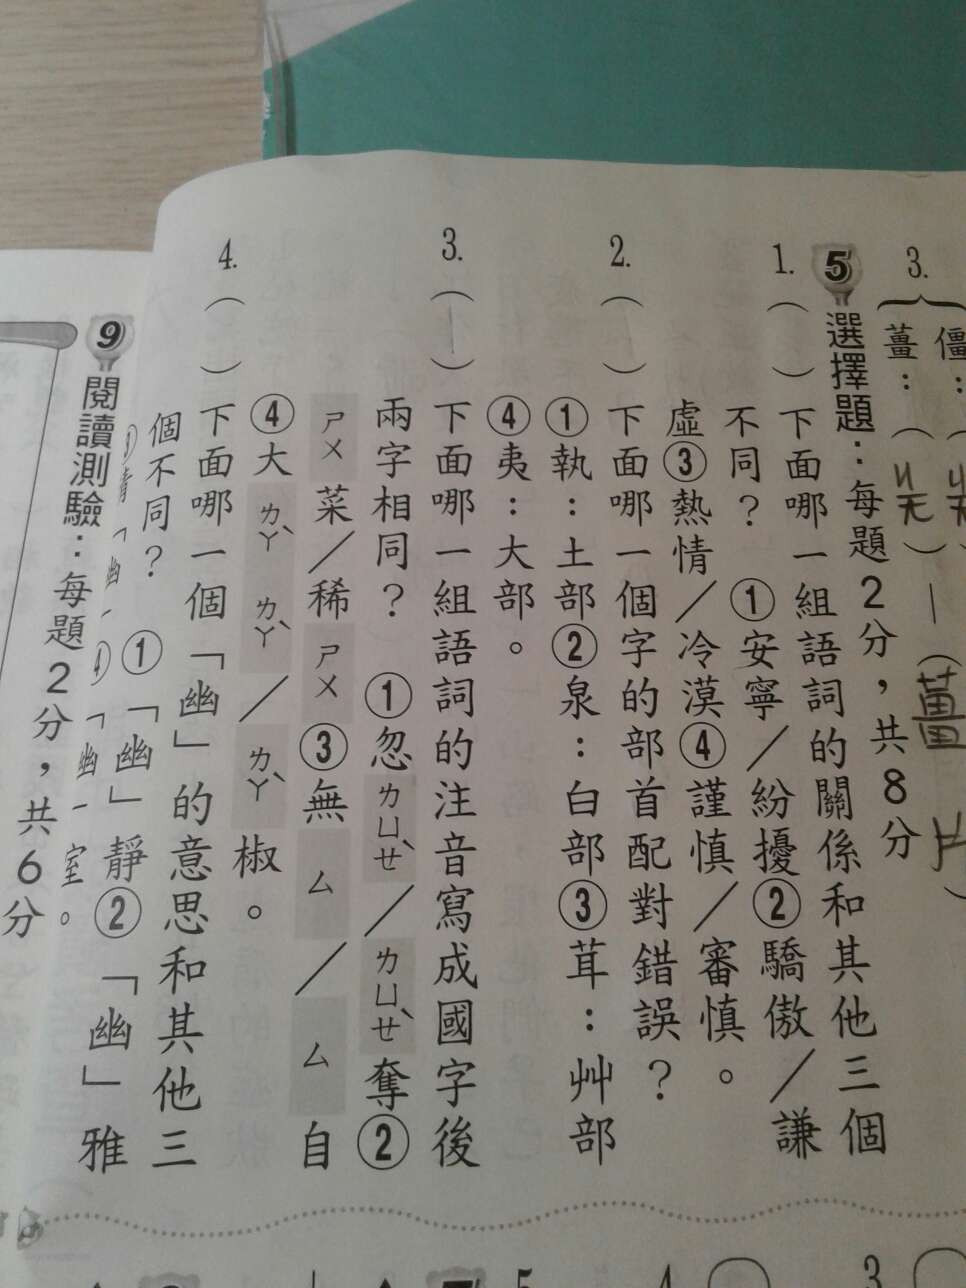 僵：（
3. 薑：（
薑
5 選擇題：每題2分，共8分
1.（ ）下面哪一組語詞的關係和其他三個
不同？ ①安寧／紛擾②驕傲／謙
虛③熱情／冷漠④謹慎／審慎。
2.（ ）下面哪一個字的部首配對錯誤？
①執：土部②泉：白部③茸：艸部
④夷：大部。
3.（ ）下面哪一組語詞的注音寫成國字後
兩字相同？ ①忽ㄌㄩㄝˋ／ㄌㄩㄝˋ奪②
ㄕㄨ菜／稀ㄕㄨ③無ㄙ／ㄙ自
④大ㄌㄚˋㄌㄚˋ／ㄌㄚˋ椒。
4.（ ）下面哪一個「幽」的意思和其他三
個不同？ ①「幽」靜②「幽」雅
「幽」「幽」室。
9 閱讀測驗：每題2分，共6分
5
4
3